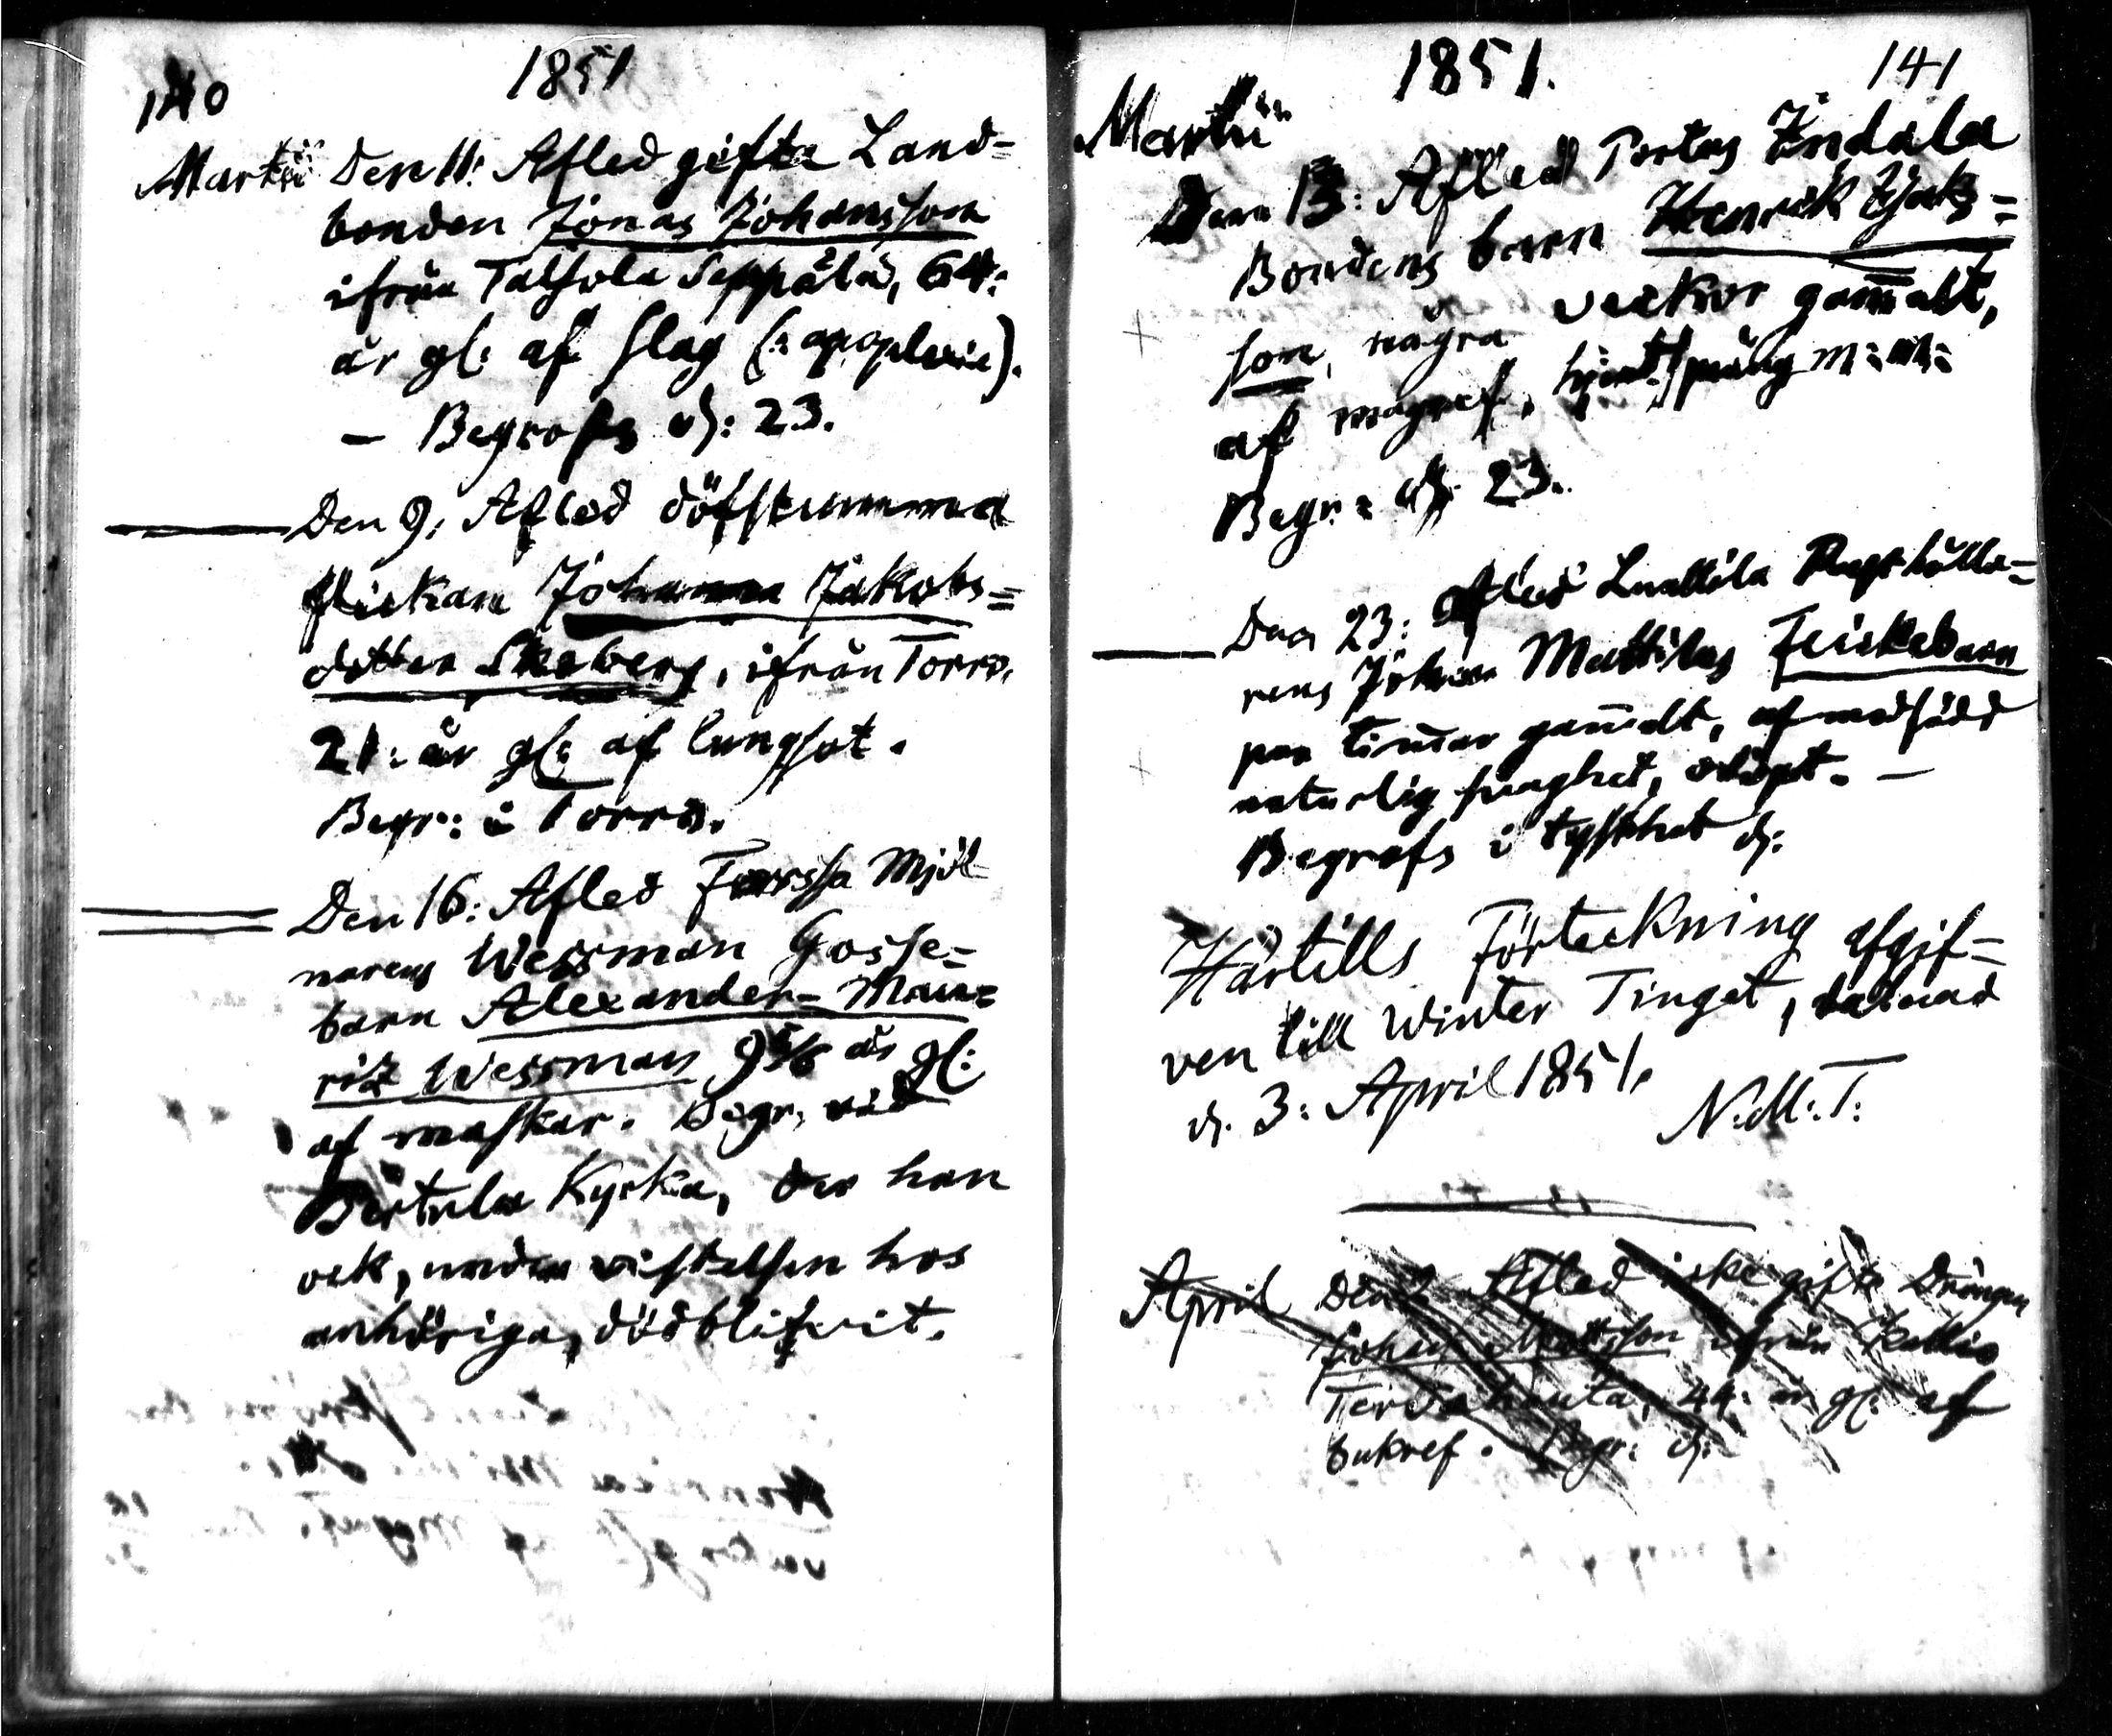 140
1851
Martii Den 11: Afled gifta Land-
bonden Jonas Johansson
ifrån Talsola Seppälä, 64:
år gl: af slag (: apoplexie).
— Begrofs d: 23.
Den 9: Afled döfstumma
flickan Johanna Jakobs=
dotter Skeberg, ifrån Torro,
21: år gl: af lungsot.
Begr: i Torro.
Den 16: Afled Forssa Mjöl
narens Wessman Gosse=
barn Alexander= Mau=
ritz Wessman 9 5/6 år gl:
af maskar. Begr. vid
Pertula Kyrka, der han
ock, under vistelsen hos
anhöriga, död blifvit.
1851.
141
Martii
Den 13: Afled Portas Endala
Bondens barn Henrik
son, några veckor gamalt,
af magref, hjertsprång m: m:
Begr: d: 23.
Den 23: Afled Lunttila
rens Johan Mattilas Flickebarn
par timar gamalt, af medfödd
naturlig svaghet, odöpt. —
Begrofs i tysthet d:
Härtills Förteckning afgif=
ven till Winter Tinget, daterad
d. 3: April 1851.
N:M:T:
April Den 2 Afled icke gifte Drängen
Johan Mattsson ifrån Kallio
44: år gl: af
bukref. Begr: d: